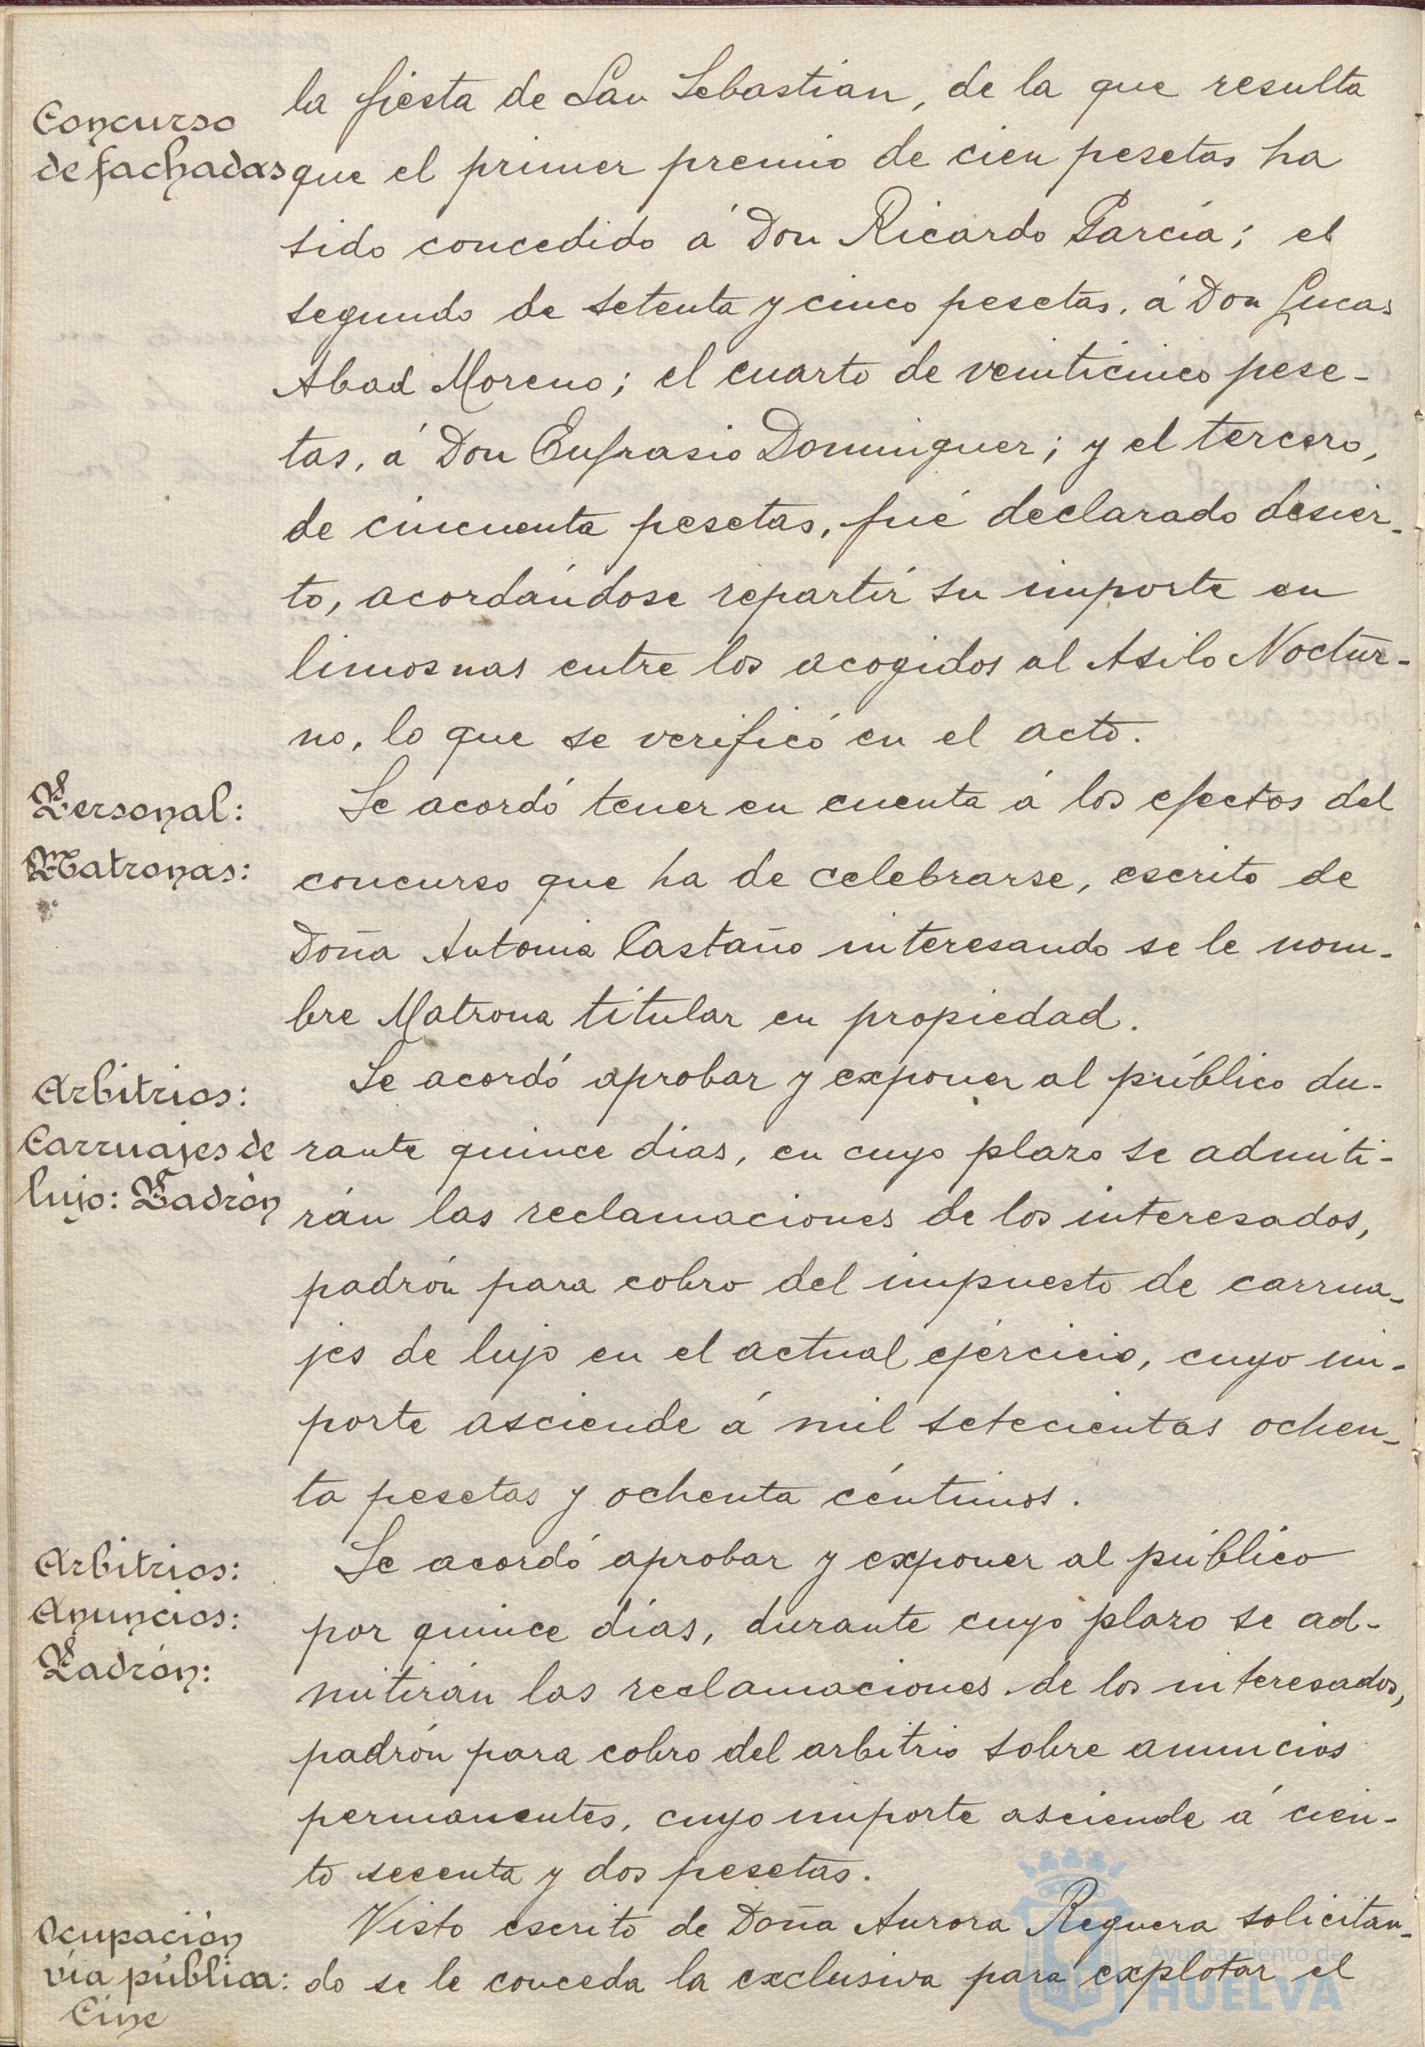 Concurso
de fachadas
la fiesta de San Sebastian, de la que resulta
que el primer premio de cien pesetas ha
sido concedido á Don Ricardo García; el
segundo de setenta y cinco pesetas, á Don Lucas
Abad Moreno; el cuarto de veinticinco pese-
tas, á Don Eufrasio Dominguez; y el tercero,
de cincuenta pesetas, fué declarado desier-
to, acordándose repartir su importe en
limosnas entre los acogidos al Asilo Noctur-
no, lo que se verificó en el acto.
Personal:
Matronas:
Se acordó tener en cuenta á los efectos del
concurso que ha de celebrarse, escrito de
Doña Antonia Castaño interesando se le nom-
bre Matrona titular en propiedad.
Arbitrios:
Carruajes de
lujo: Padrón
Se acordó aprobar y exponer al público du-
rante quince dias, en cuyo plazo se admiti-
rán las reclamaciones de los interesados,
padrón para cobro del impuesto de carrua-
jes de lujo en el actual ejercicio, cuyo im-
porte asciende á mil setecientas ochen-
ta pesetas y ochenta céntimos.
Arbitrios:
Anuncios:
Padrón:
Se acordó aprobar y exponer al público
por quince días, durante cuyo plazo se ad-
mitirán las reclamaciones de los interesados,
padrón para cobro del arbitrio sobre anuncios
permanentes, cuyo importe asciende á cien-
to secenta y dos pesetas.
Ocupación
vía pública:
Cine
Visto escrito de Doña Aurora Reguera solicitan-
do se le conceda la exclusiva para explotar el
Ayuntamiento de
HUELVA